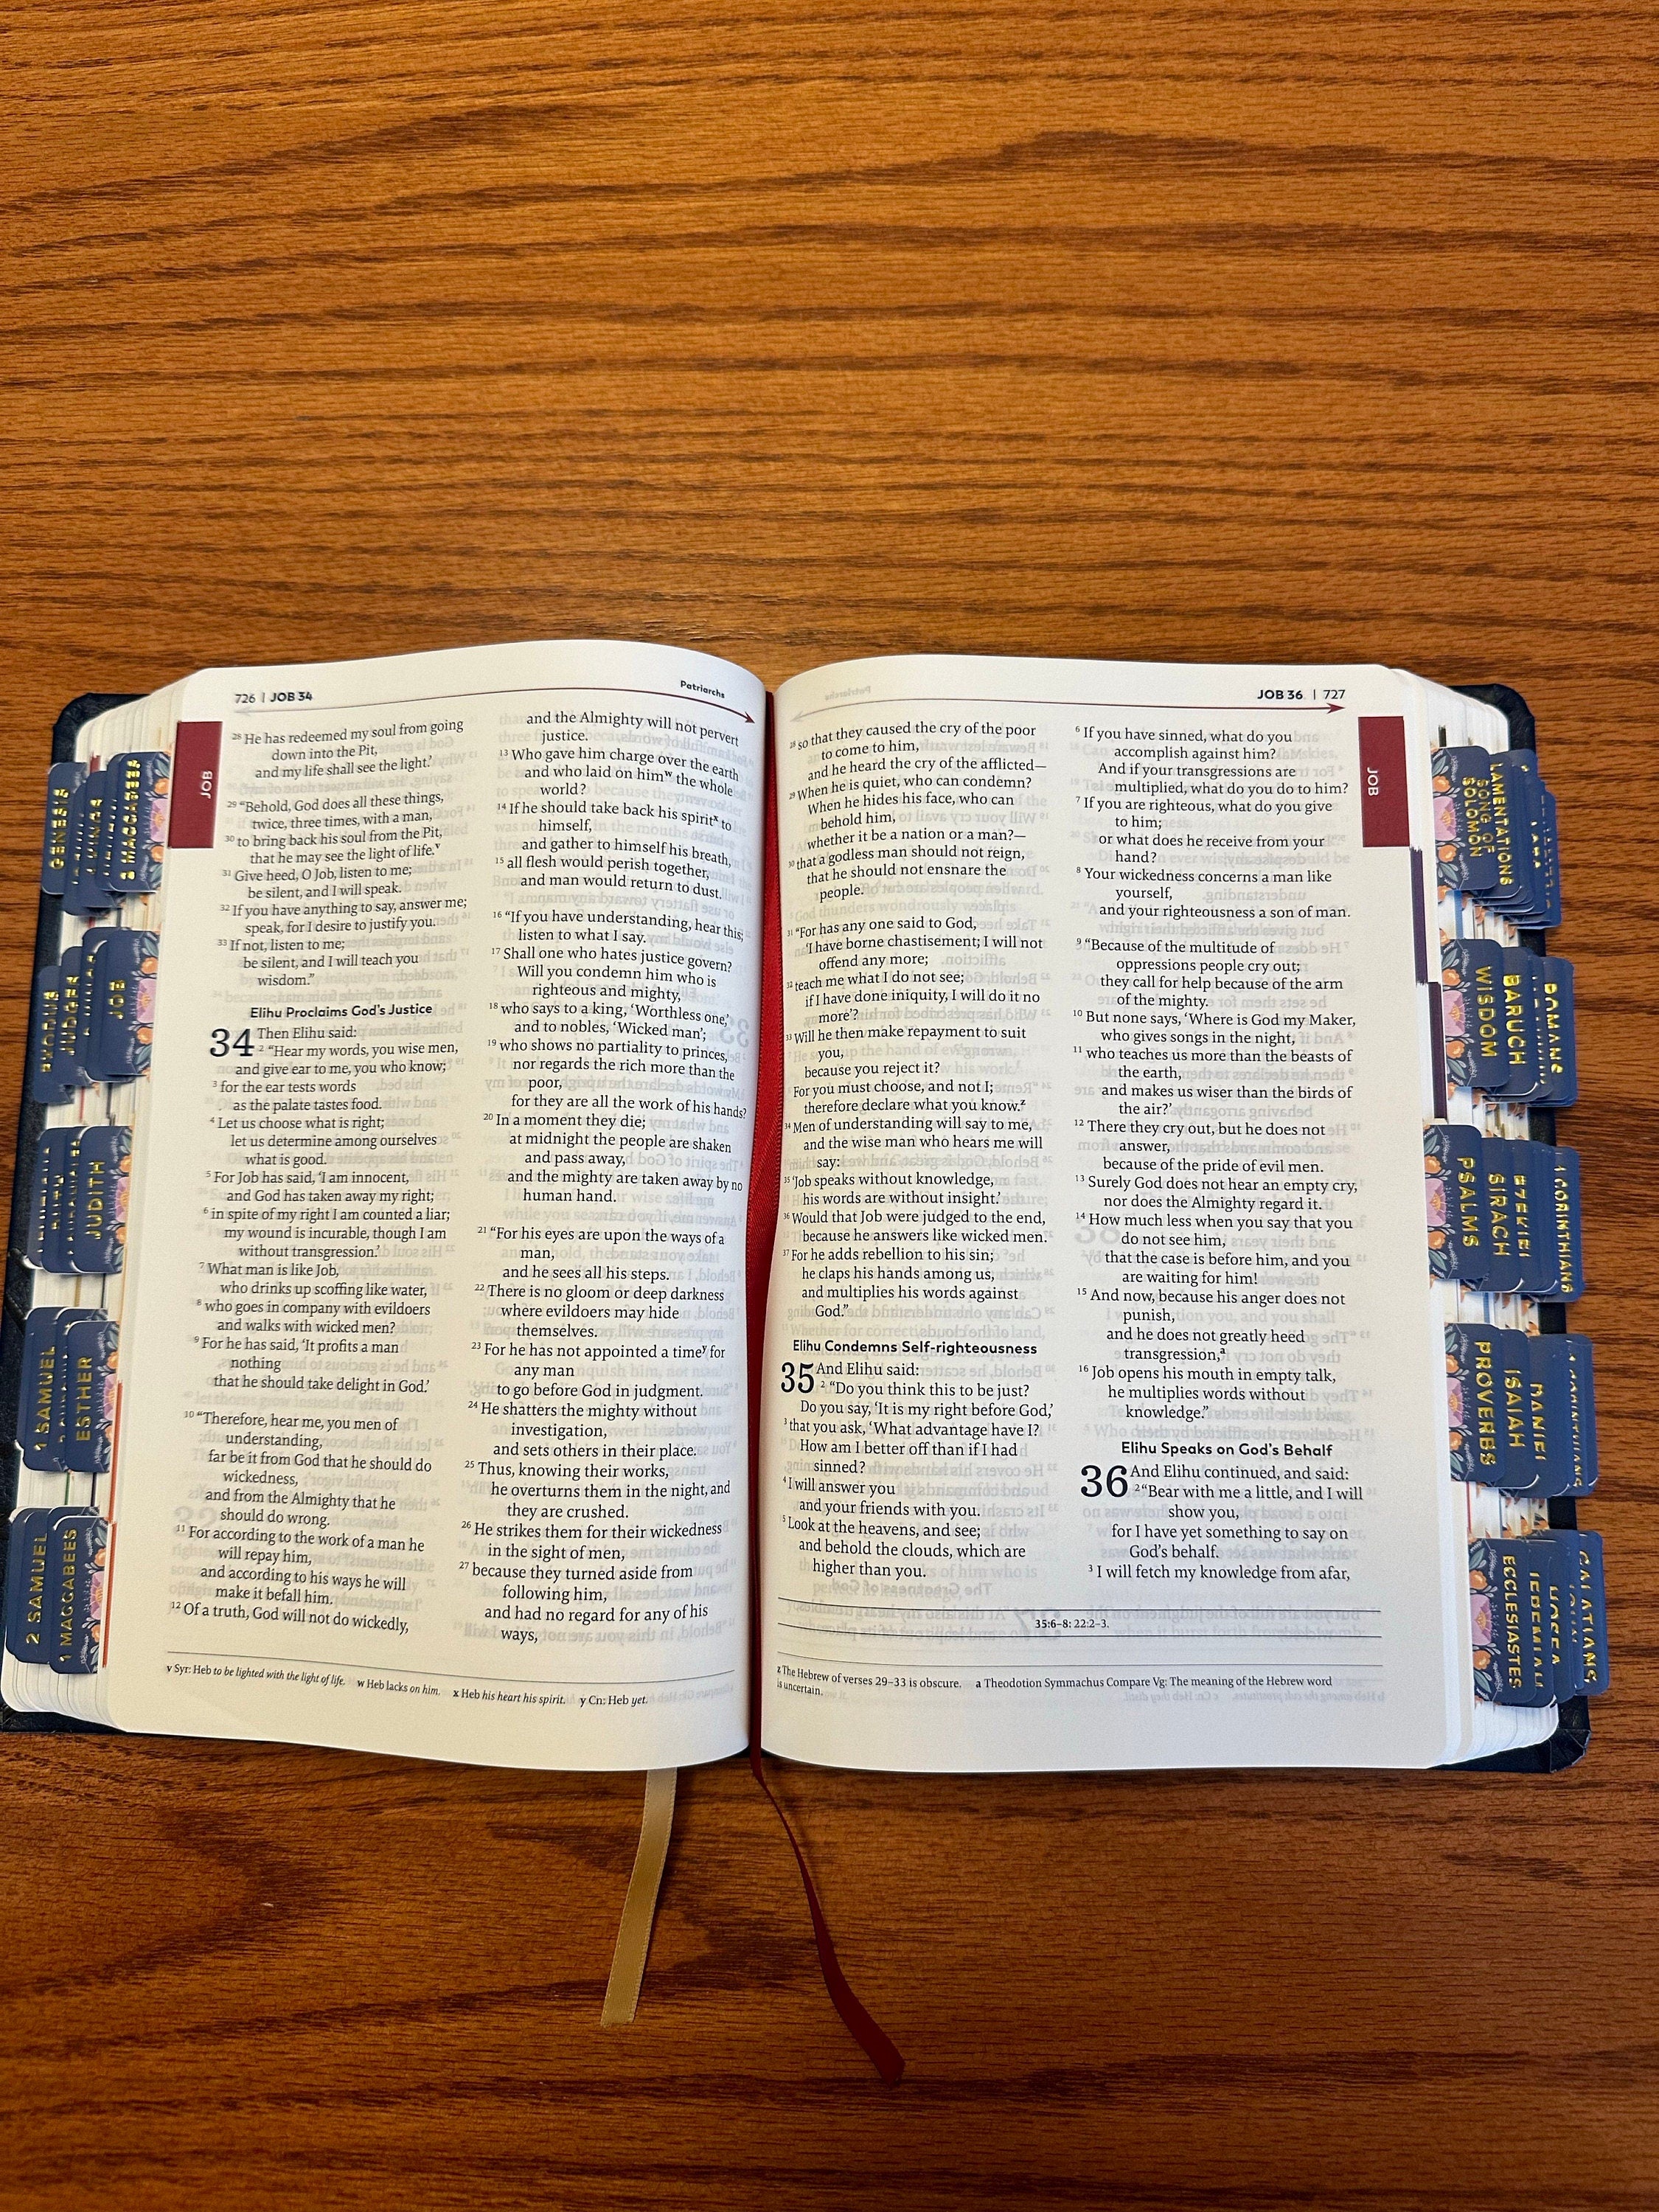 726 | JOB 34
Patriarchs
JOB
28 He has redeemed my soul from going
down into the Pit,
and my life shall see the light.’
29 “Behold, God does all these things,
twice, three times, with a man,
30 to bring back his soul from the Pit,
that he may see the light of life.v
31 Give heed, O Job, listen to me;
be silent, and I will speak.
32 If you have anything to say, answer me;
speak, for I desire to justify you.
33 If not, listen to me;
be silent, and I will teach you
wisdom.”
Elihu Proclaims God’s Justice
34 Then Elihu said:
2 “Hear my words, you wise men,
and give ear to me, you who know;
3 for the ear tests words
as the palate tastes food.
4 Let us choose what is right;
let us determine among ourselves
what is good.
5 For Job has said, ‘I am innocent,
and God has taken away my right;
6 in spite of my right I am counted a liar;
my wound is incurable, though I am
without transgression.’
7 What man is like Job,
who drinks up scoffing like water,
8 who goes in company with evildoers
and walks with wicked men?
9 For he has said, ‘It profits a man
nothing
that he should take delight in God.’
10 “Therefore, hear me, you men of
understanding,
far be it from God that he should do
wickedness,
and from the Almighty that he
should do wrong.
11 For according to the work of a man he
will repay him,
and according to his ways he will
make it befall him.
12 Of a truth, God will not do wickedly,
and the Almighty will not pervert
justice.
13 Who gave him charge over the earth
and who laid on himw the whole
world?
14 If he should take back his spiritx to
himself,
and gather to himself his breath,
15 all flesh would perish together,
and man would return to dust.
16 “If you have understanding, hear this;
listen to what I say.
17 Shall one who hates justice govern?
Will you condemn him who is
righteous and mighty,
18 who says to a king, ‘Worthless one,’
and to nobles, ‘Wicked man’;
19 who shows no partiality to princes,
nor regards the rich more than the
poor,
for they are all the work of his hands?
20 In a moment they die;
at midnight the people are shaken
and pass away,
and the mighty are taken away by no
human hand.
21 “For his eyes are upon the ways of a
man,
and he sees all his steps.
22 There is no gloom or deep darkness
where evildoers may hide
themselves.
23 For he has not appointed a timey for
any man
to go before God in judgment.
24 He shatters the mighty without
investigation,
and sets others in their place.
25 Thus, knowing their works,
he overturns them in the night, and
they are crushed.
26 He strikes them for their wickedness
in the sight of men,
27 because they turned aside from
following him,
and had no regard for any of his
ways,
v Syr: Heb to be lighted with the light of life. w Heb lacks on him. x Heb his heart his spirit. y Cn: Heb yet.
JOB 36 | 727
JOB
28 so that they caused the cry of the poor
to come to him,
and he heard the cry of the afflicted—
29 When he is quiet, who can condemn?
When he hides his face, who can
behold him,
whether it be a nation or a man?—
30 that a godless man should not reign,
that he should not ensnare the
people.
31 “For has any one said to God,
‘I have borne chastisement; I will not
offend any more;
32 teach me what I do not see;
if I have done iniquity, I will do it no
more’?
33 Will he then make repayment to suit
you,
because you reject it?
For you must choose, and not I;
therefore declare what you know.z
34 Men of understanding will say to me,
and the wise man who hears me will
say:
35 ‘Job speaks without knowledge,
his words are without insight.’
36 Would that Job were judged to the end,
because he answers like wicked men.
37 For he adds rebellion to his sin;
he claps his hands among us,
and multiplies his words against
God.”
Elihu Condemns Self-righteousness
35 And Elihu said:
2 “Do you think this to be just?
Do you say, ‘It is my right before God,’
3 that you ask, ‘What advantage have I?
How am I better off than if I had
sinned?’
4 I will answer you
and your friends with you.
5 Look at the heavens, and see;
and behold the clouds, which are
higher than you.
6 If you have sinned, what do you
accomplish against him?
And if your transgressions are
multiplied, what do you do to him?
7 If you are righteous, what do you give
to him;
or what does he receive from your
hand?
8 Your wickedness concerns a man like
yourself,
and your righteousness a son of man.
9 “Because of the multitude of
oppressions people cry out;
they call for help because of the arm
of the mighty.
10 But none says, ‘Where is God my Maker,
who gives songs in the night,
11 who teaches us more than the beasts of
the earth,
and makes us wiser than the birds of
the air?’
12 There they cry out, but he does not
answer,
because of the pride of evil men.
13 Surely God does not hear an empty cry,
nor does the Almighty regard it.
14 How much less when you say that you
do not see him,
that the case is before him, and you
are waiting for him!
15 And now, because his anger does not
punish,
and he does not greatly heed
transgression,a
16 Job opens his mouth in empty talk,
he multiplies words without
knowledge.”
Elihu Speaks on God’s Behalf
36 And Elihu continued, and said:
2 “Bear with me a little, and I will
show you,
for I have yet something to say on
God’s behalf.
3 I will fetch my knowledge from afar,
35:6–8: 22:2–3.
z The Hebrew of verses 29–33 is obscure. a Theodotion Symmachus Compare Vg: The meaning of the Hebrew word
is uncertain.
GENESIS
2 MACCABEES
EXODUS
JUDGES
JOB
JUDITH
1 SAMUEL
ESTHER
2 SAMUEL
1 MACCABEES
SONG OF
SOLOMON
LAMENTATIONS
WISDOM
BARUCH
ROMANS
PSALMS
SIRACH
EZEKIEL
1 CORINTHIANS
PROVERBS
ISAIAH
DANIEL
ECCLESIASTES
JEREMIAH
HOSEA
GALATIANS